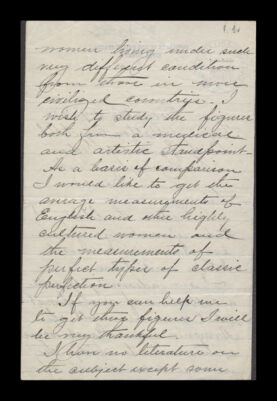 women living under such
very different condition
from those in more
civilized countrys. I
wish to study the figures
both from a medical
and artistic standpoint.
As a basis of comparison
I would like to get the
average measurements of
English and other highly
cultured women and
the measurements of
perfect types of classic
perfection.
If you can help me
to get these figures I will
be very thankful.
I have no literature on
the subject except some